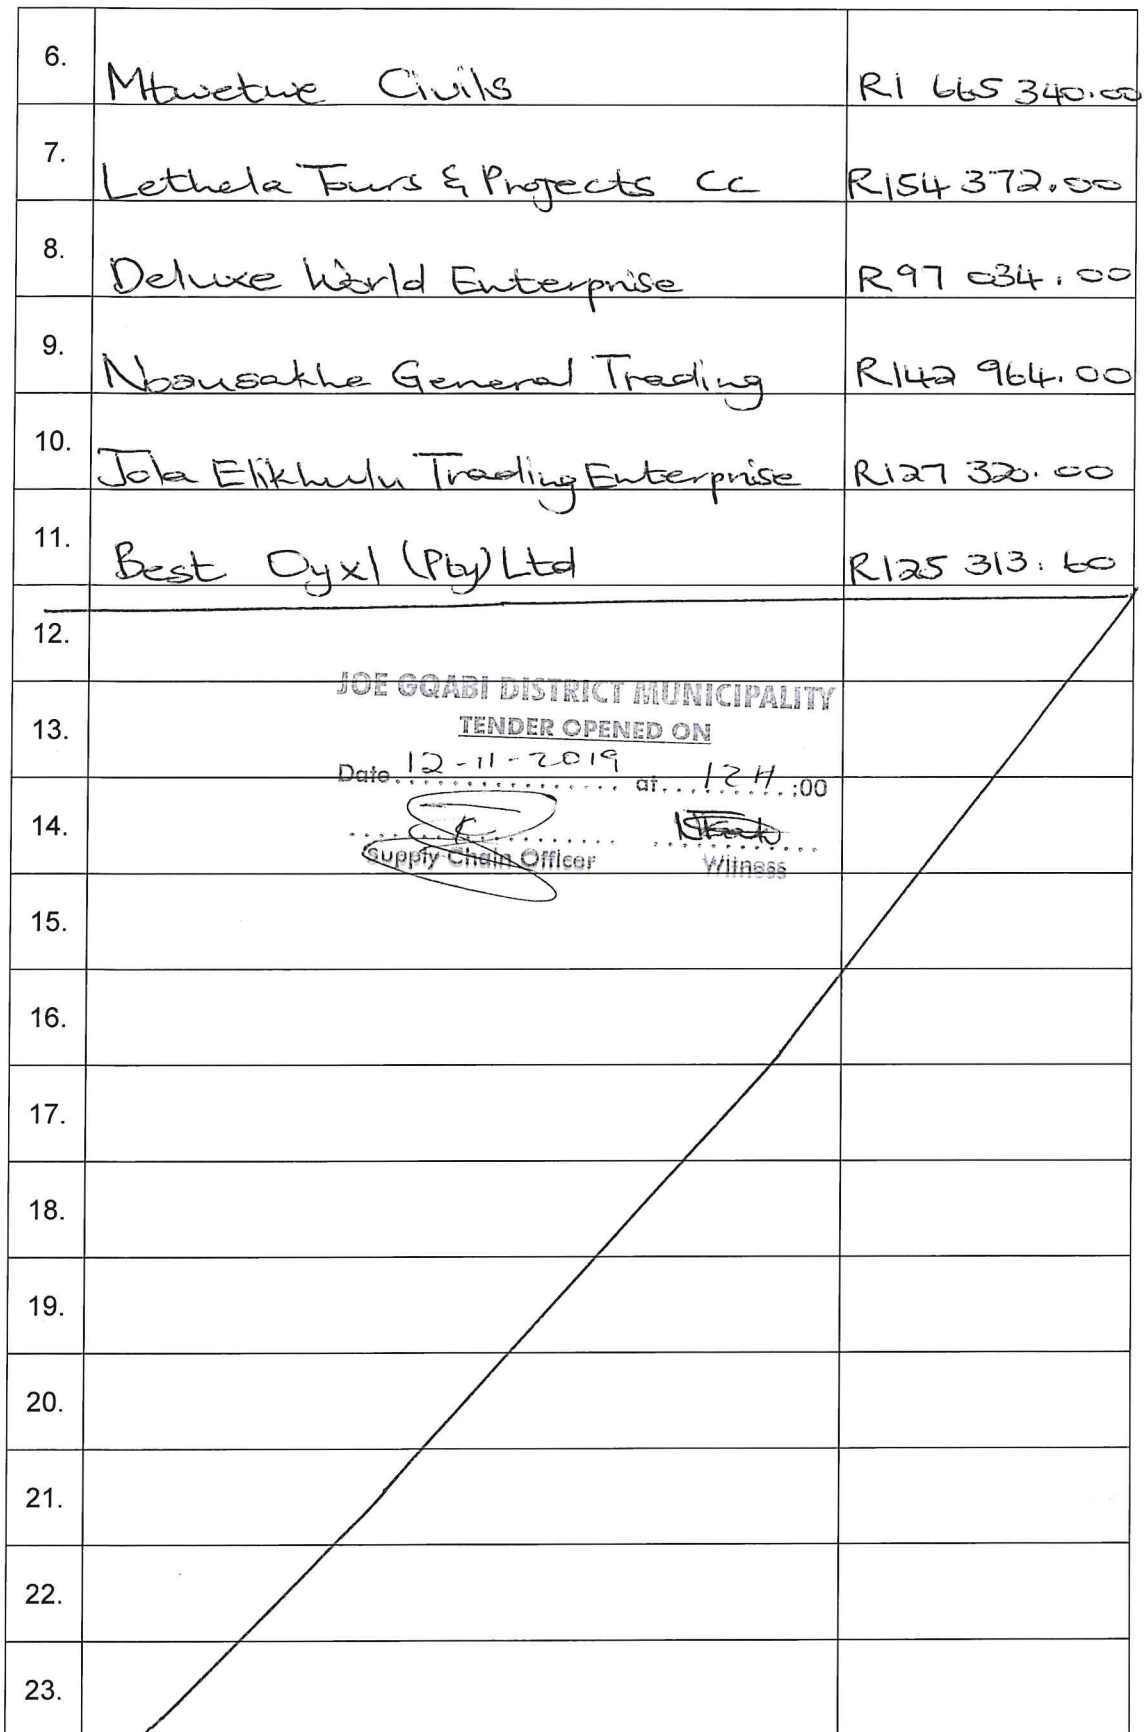 6. Mtwetwe Civils R1 665 340.00
7. Lethela Tours & Projects CC R154 372.00
8. Deluxe World Enterprise R97 034.00
9. General Trading R142 964.00
10. Jola Elikhulu Trading Enterprise R127 320.00
11. Best Oyxl (Pty) Ltd R125 313.60
12.
JOE GQABI DISTRICT MUNICIPALITY
13. TENDER OPENED ON
Date 12-11-2019 at 12H:00
14.
Supply Chain Officer Witness
15.
16.
17.
18.
19.
20.
21.
22.
23.